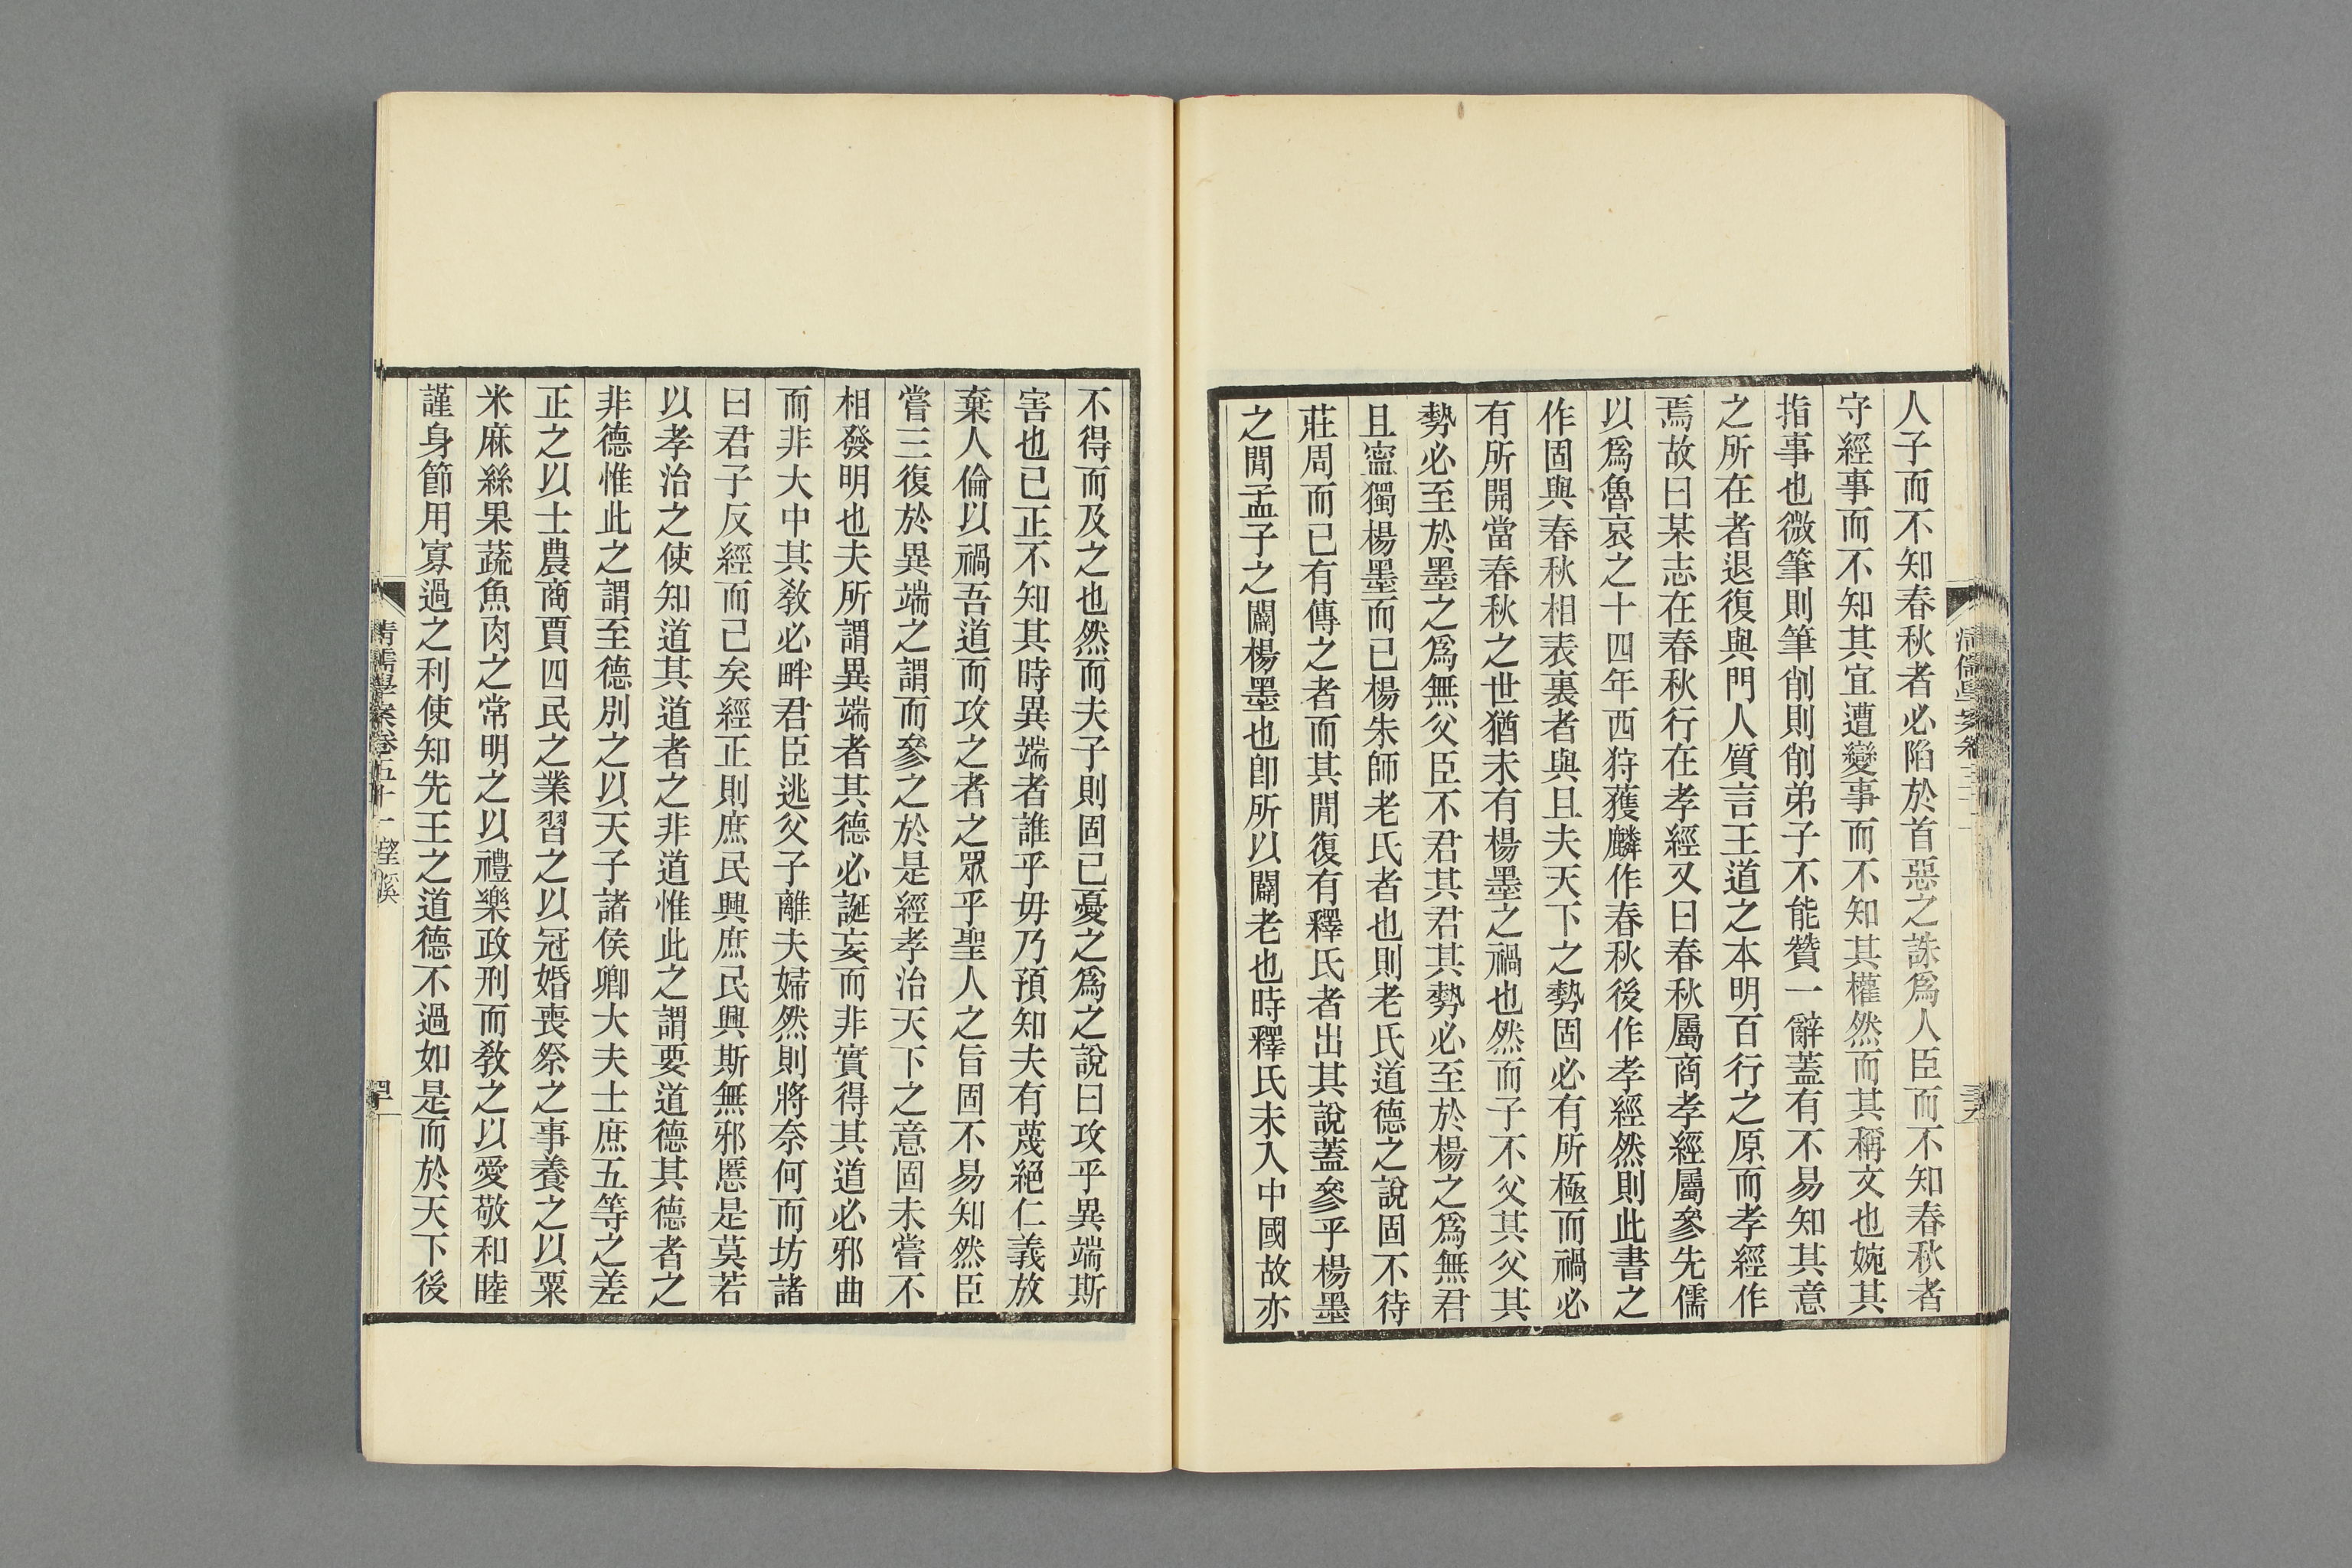 人子而不知春秋者必陷於首惡之誅爲人臣而不知春秋者
守經事而不知其宜遭變事而不知其權然而其稱文也婉其
指事也微筆則筆削則削弟子不能贊一辭蓋有不易知其意
之所在者退復與門人質言王道之本明百行之原而孝經作
焉故曰某志在春秋行在孝經又曰春秋屬商孝經屬參先儒
以爲魯哀之十四年西狩獲麟作春秋後作孝經然則此書之
作固與春秋相表裏者與且夫天下之勢固必有所極而禍必
有所開當春秋之世猶未有楊墨之禍也然而子不父其父其
勢必至於墨之爲無父臣不君其君其勢必至於楊之爲無君
且寍獨楊墨而已楊朱師老氏者也則老氏道德之說固不待
莊周而已有傳之者而其閒復有釋氏者出其說蓋參乎楊墨
之閒孟子之闢楊墨也卽所以闢老也時釋氏未入中國故亦
不得而及之也然而夫子則固已憂之爲之說曰攻乎異端斯
害也已正不知其時異端者誰乎毋乃預知夫有蔑絕仁義放
棄人倫以禍吾道而攻之者之眾乎聖人之旨固不易知然臣
嘗三復於異端之謂而參之於是經孝治天下之意固未嘗不
相發明也夫所謂異端者其德必誕妄而非實得其道必邪曲
而非大中其敎必畔君臣逃父子離夫婦然則將奈何而坊諸
曰君子反經而已矣經正則庶民興庶民興斯無邪慝是莫若
以孝治之使知道其道者之非道惟此之謂要道德其德者之
非德惟此之謂至德別之以天子諸侯卿大夫士庶五等之差
正之以士農商賈四民之業習之以冠婚喪祭之事養之以粟
米麻絲果蔬魚肉之常明之以禮樂政刑而敎之以愛敬和睦
謹身節用寡過之利使知先王之道德不過如是而於天下後
清儒學案卷五十一 望溪